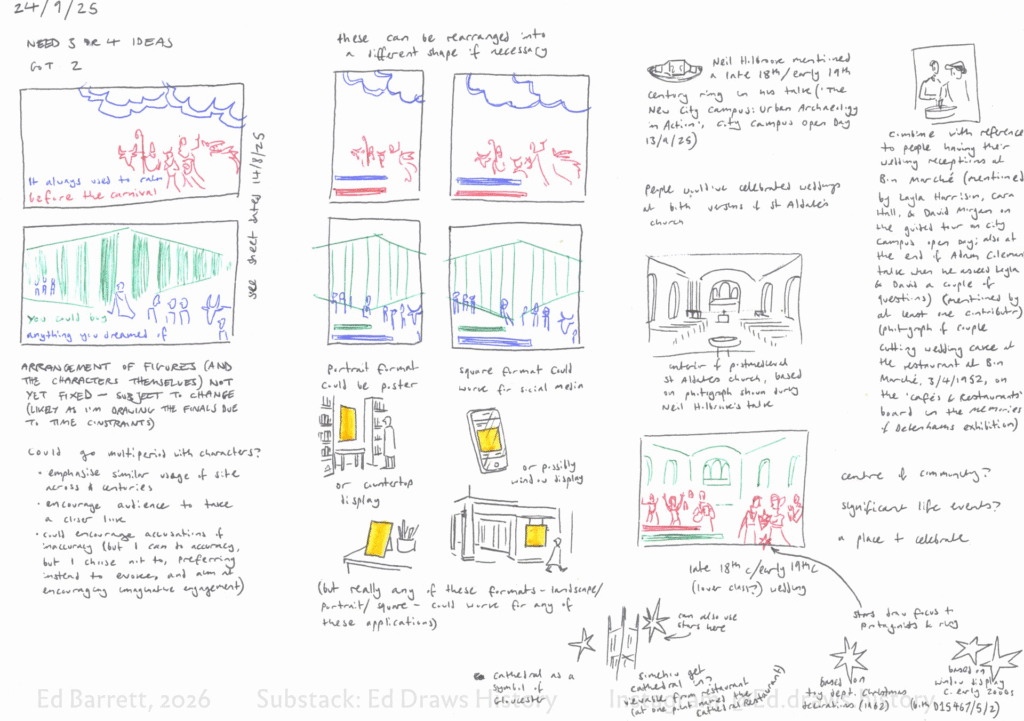 24/9/25
NEED 3 OR 4 IDEAS
GOT 2
It always used to rain
before the carnival
see sheet dated 14/8/25
You could buy
anything you dreamed of
ARRANGEMENT OF FIGURES (AND
THE CHARACTERS THEMSELVES) NOT
YET FIXED – SUBJECT TO CHANGE
(LIKELY AS I'M DRAWING THE FINALS DUE
TO TIME CONSTRAINTS)
Could go multiperiod with characters?
• emphasise similar usage of site
across centuries
• encourage audience to take
a closer look
• could encourage accusations of
inaccuracy (but I can do accuracy,
but I choose not to, preferring
instead to evoke, and aim at
encouraging imaginative engagement)
these can be rearranged into
a different shape if necessary
portrait format
could be poster
square format could
work for social media
or countertop
display
or possibly
window display
(but really any of these formats – landscape/
portrait/square – could work for any of
these applications)
Neil Holbrook mentioned
a late 18th/early 19th
century ring in his talk ('The
New City Campus: Urban Archaeology
in Action', City Campus Open Day
13/9/25)
People would've celebrated weddings
at both versions of St Aldate's
church
interior of postmedieval
St Aldate's church, based
on photograph shown during
Neil Holbrook's talk
late 18th c/early 19th c
(lower class?) wedding
combine with reference
to people having their
wedding receptions at
Bon Marché (mentioned
by Layla Harrison, Cara
Hall, & David Morgan on
the guided tour on City
Campus open day; also at
the end of Adam Coleman
talk when he asked Layla
& David a couple of
questions) (mentioned by
at least one contributor)
(photograph of couple
cutting wedding cake at
the restaurant at Bon
Marché, 3/4/1952, on
the 'Cafés & Restaurants'
board in the memories
of Debenhams exhibition)
centre of community?
significant life events?
a place to celebrate
stars draw focus to
protagonists & ring
can also use
stars here
cathedral as a
symbol of
Gloucester
somehow get
cathedral in?
visible from restaurant
(at one point named the
Cathedral Restaurant)
based on
toy dept. Christmas
decorations (1962)
based on
window display
c. early 2000s
D15467/5/2)
Ed Barrett, 2026
Substack: Ed Draws History
Ed draws history